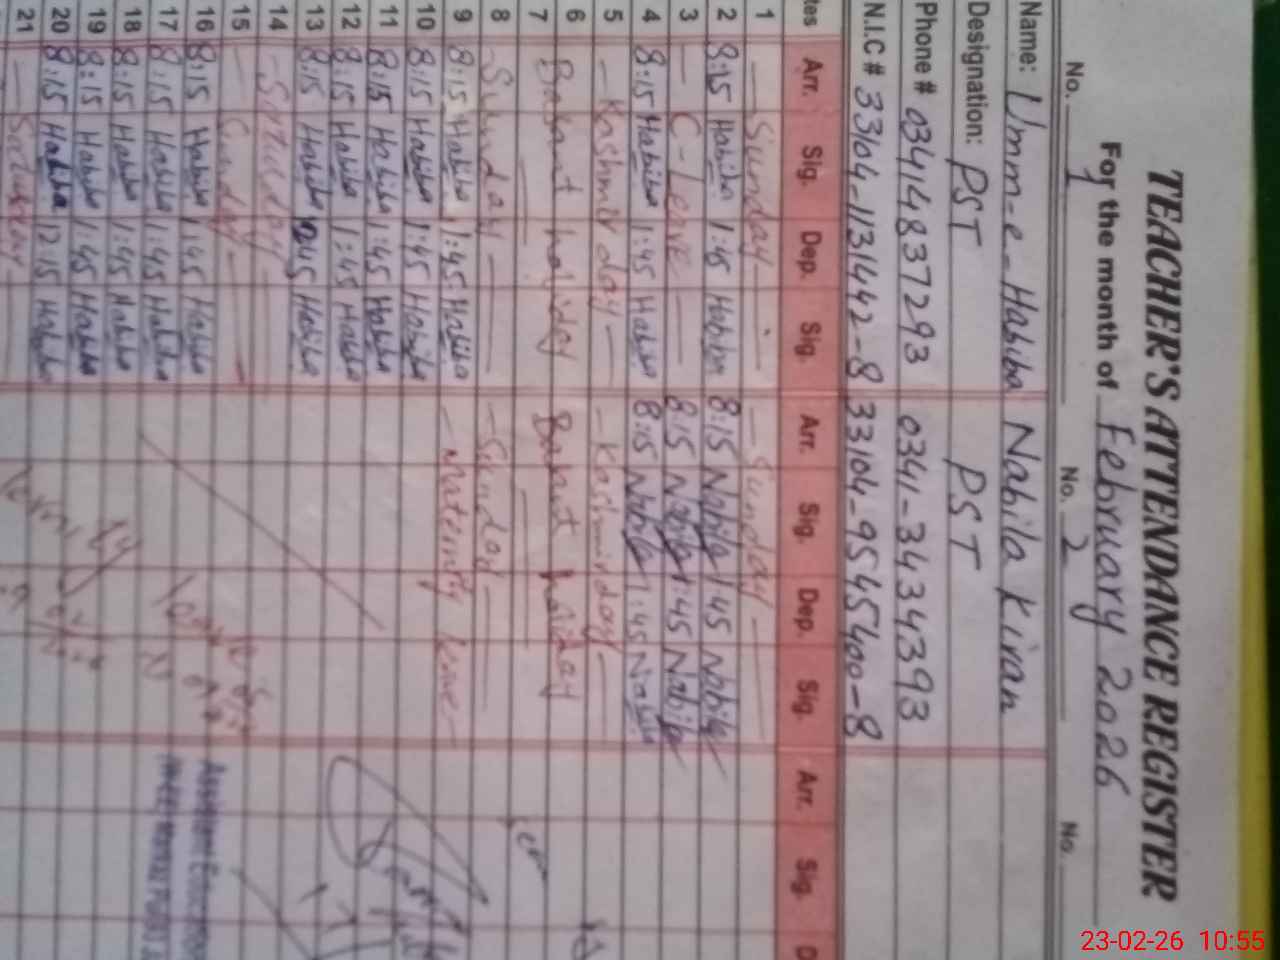 TEACHER'S ATTENDANCE REGISTER
For the month of February 2026
No. 1 No. 2 No.
Name: Umm-e-Habiba Nabila Kiran
Designation: PST PST
Phone # 03414837293 0341-3434393
N.I.C # 33104-1131442-8 33104-9545400-8
tes Arr. Sig. Dep. Sig. Arr. Sig. Dep. Sig. Arr. Sig. D
1 Sunday Sunday
2 8:15 Habiba 1:45 Habiba 8:15 Nabila 1:45 Nabila
3 C-Leave 8:15 Nabila 1:45 Nabila
4 8:15 Habiba 1:45 Habiba 8:15 Nabila 1:45 Nabila
5 Kashmir day Kashmir day
6 Basant holiday Basant holiday
7
8 Sunday Sunday
9 8:15 Habiba 1:45 Habiba Maternity leave
10 8:15 Habiba 1:45 Habiba
11 8:15 Habiba 1:45 Habiba
12 8:15 Habiba 1:45 Habiba
13 8:15 Habiba 12:45 Habiba
14
15 Sunday
16 8:15 Habiba 1:45 Habiba
17 8:15 Habiba 1:45 Habiba
18 8:15 Habiba 1:45 Habiba
19 8:15 Habiba 1:45 Habiba
20 8:15 Habiba 12:15 Habiba
21
Assistant Education
23-02-26 10:55